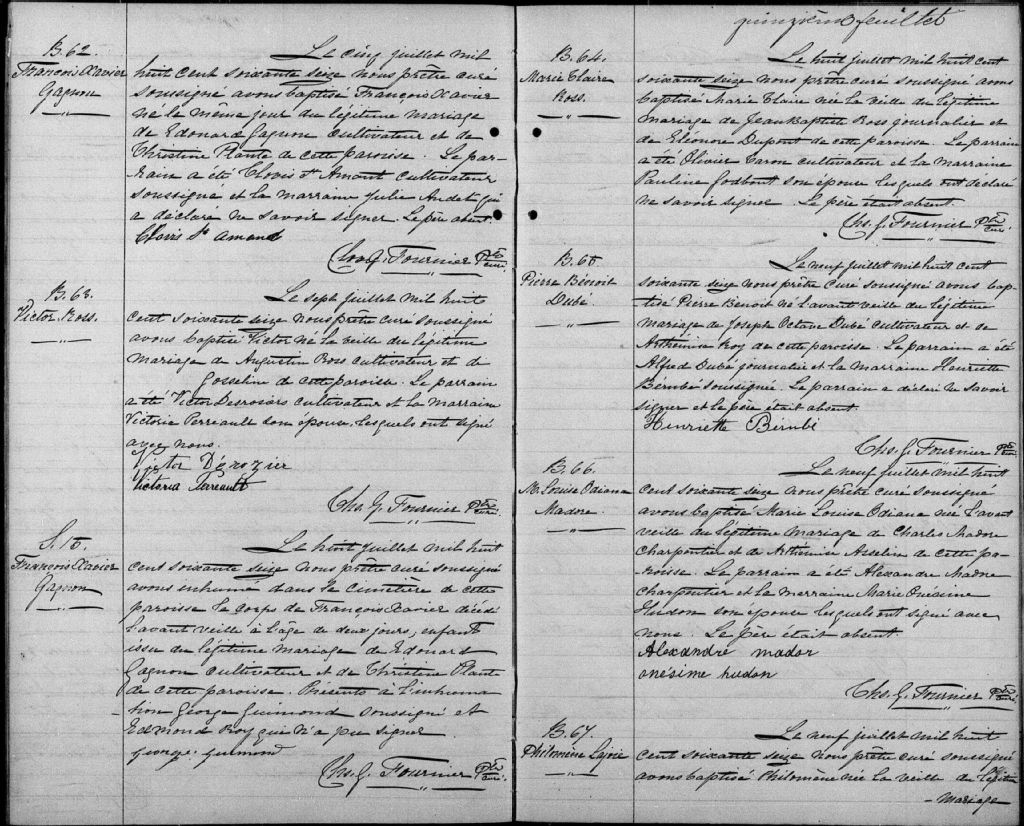 B. 62.
François Xavier
Gagnon
Le cinq juillet mil
huit cent soixante seize nous prêtre curé
soussigné avons baptisé François Xavier
né le même jour du légitime mariage
de Edouard Gagnon cultivateur et de
Christine Plante de cette paroisse. Le par-
rain a été Clovis St Amant cultivateur
soussigné et la marraine Julie Audet qui
a déclaré ne savoir signer. Le père absent.
Clovis St amand
Chs. G. Fournier Ptre curé.
B. 63.
Victor Ross.
Le sept juillet mil huit
cent soixante seize nous prêtre curé soussigné
avons baptisé Victor né la veille du légitime
mariage de Augustin Ross cultivateur et de
Gosselin de cette paroisse. Le parrain
a été Victor Desrosiers cultivateur et la marraine
Victoria Perreault son épouse, lesquels ont signé
avec nous.
Victor Dérozier
Victoria Parreault
Chs. G. Fournier Ptre curé.
S. 15.
François Xavier
Gagnon
Le huit juillet mil huit
cent soixante seize nous prêtre curé soussigné
avons inhumé dans le cimetière de cette
paroisse le corps de François Xavier décédé
l'avant veille à l'âge de deux jours, enfant
issu du légitime mariage de Edouard
Gagnon cultivateur et de Christine Plante
de cette paroisse. Présents à l'inhuma
tion George Guimond soussigné et
Edmond Roy qui n'a pu signer.
george guimond
Chs. G. Fournier Ptre curé.
quinzième feuillet
B. 64.
Marie Claire
Ross.
Le huit juillet mil huit cent
soixante seize nous prêtre curé soussigné avons
baptisé Marie Claire née la veille du légitime
mariage de Jean Baptiste Ross journalier et
de Eléonore Dupont de cette paroisse. Le parrain
a été Olivier Caron cultivateur et la marraine
Pauline Godbout son épouse lesquels ont déclaré
ne savoir signer. Le père était absent.
Chs. G. Fournier Ptre curé.
B. 65
Pierre Bénoit
Dubé
Le neuf juillet mil huit cent
soixante seize nous prêtre curé soussigné avons bap-
tisé Pierre Benoit né l'avant veille du légitime
mariage de Joseph Octave Dubé cultivateur et de
Arthémia Roy de cette paroisse. Le parrain a été
Alfred Dubé journalier et la marraine Henriette
Bérubé soussignée. Le parrain a déclaré ne savoir
signer et le père était absent.
Henriette Bérubé
Chs. G. Fournier Ptre curé.
B. 66.
M. Louise Odiana
Madore.
Le neuf juillet mil huit
cent soixante seize nous prêtre curé soussigné
avons baptisé Marie Louise Odiana née l'avant
veille du légitime mariage de Charles Madore
charpentier et de Arthémise Asselin de cette pa-
roisse. Le parrain a été Alexandre Madore
charpentier et la marraine Marie Onésime
Hudon son épouse lesquels ont signé avec
nous. Le père était absent
Alexandre mador
onésime hudon
Chs. G. Fournier Ptre curé.
B. 67.
Philomène Lajoie
Le neuf juillet mil huit
cent soixante seize nous prêtre curé soussigné
avons baptisé Philomène née la veille du légitime
- mariage